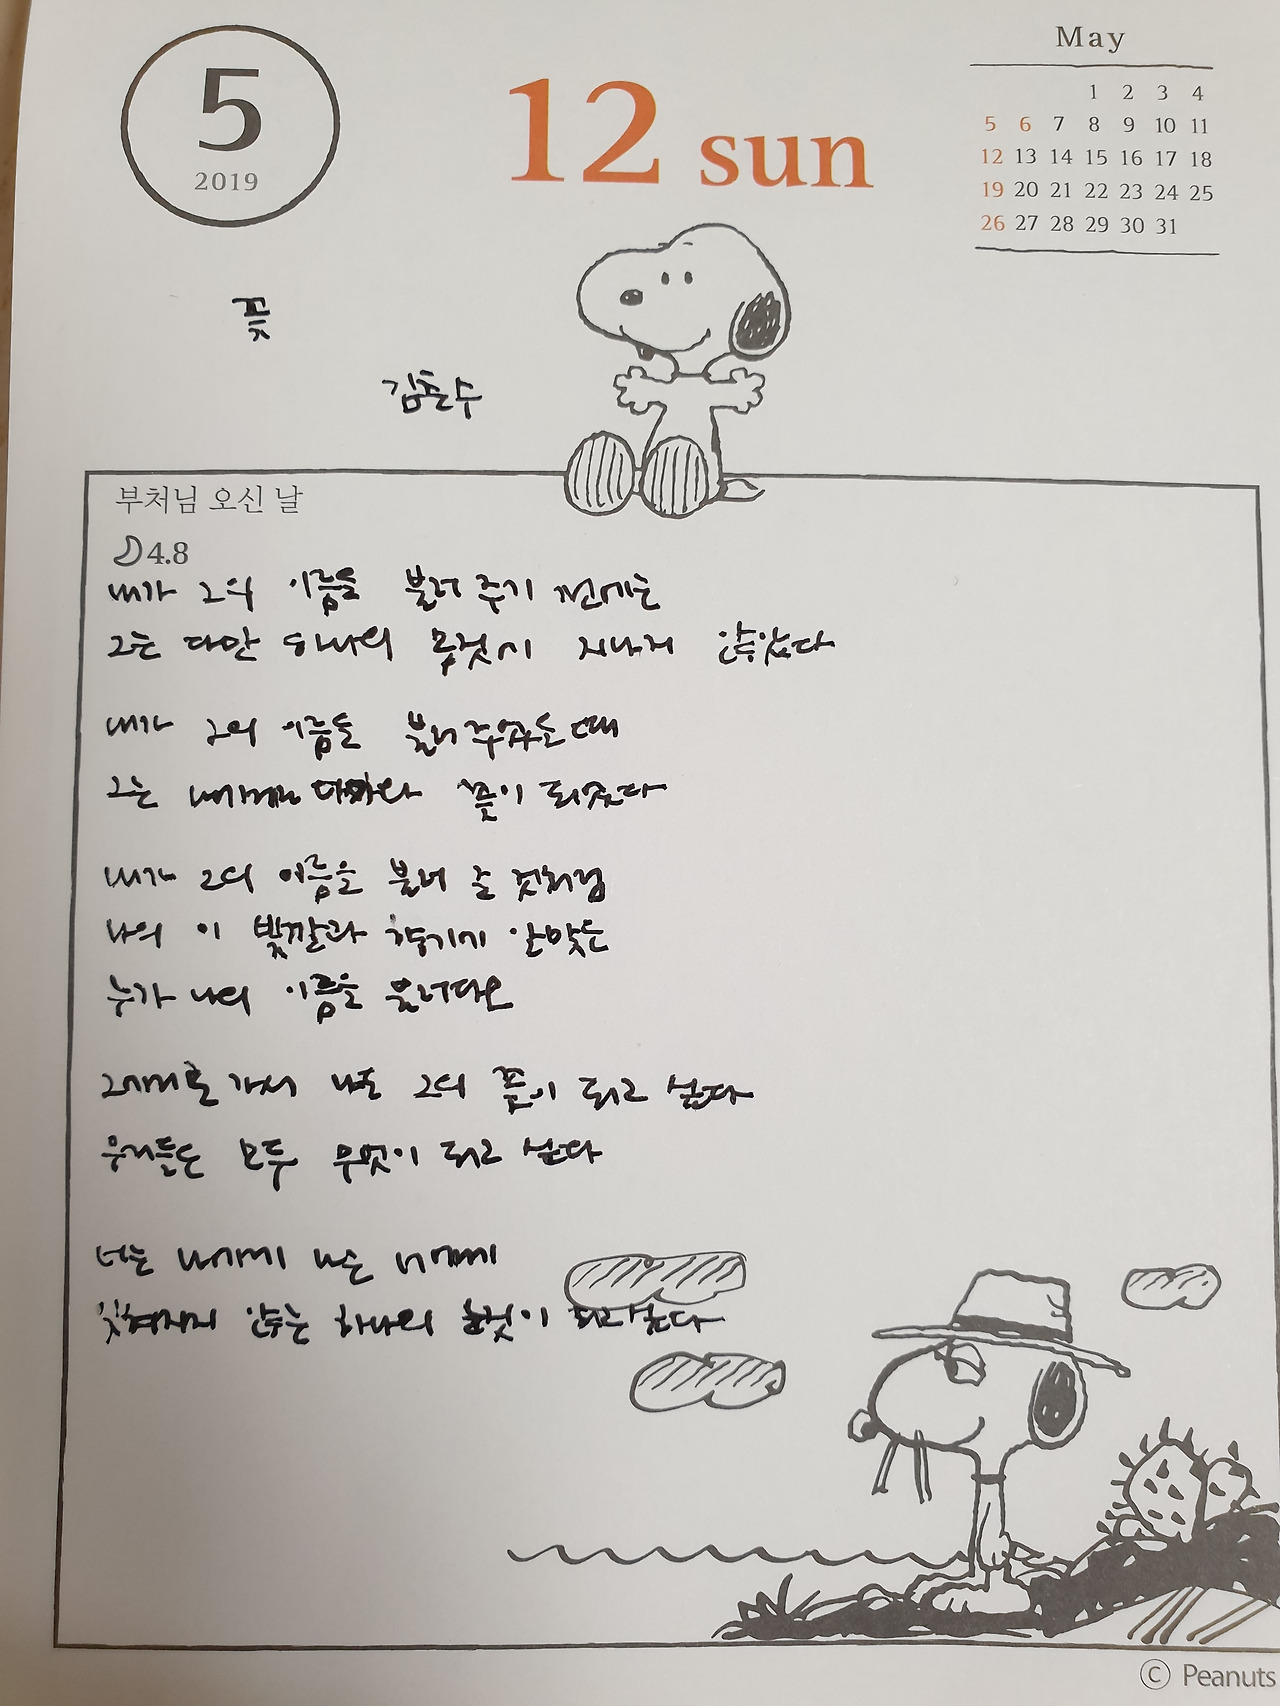 5
2019
12 sun
May
1 2 3 4
5 6 7 8 9 10 11
12 13 14 15 16 17 18
19 20 21 22 23 24 25
26 27 28 29 30 31
꽃
김춘수
부처님 오신 날
4.8
내가 그의 이름을 불러 주기 전에는
그는 다만 하나의 몸짓에 지나지 않았다
내가 그의 이름을 불러주었을 때
그는 나에게로 다가와 꽃이 되었다
내가 그의 이름을 불러 준 것처럼
나의 이 빛깔과 향기에 알맞은
누가 나의 이름을 불러다오
그에게로 가서 나도 그의 꽃이 되고 싶다
우리들은 모두 무엇이 되고 싶다
너는 나에게 나는 너에게
잊혀지지 않는 하나의 눈짓이 되고싶다
© Peanuts